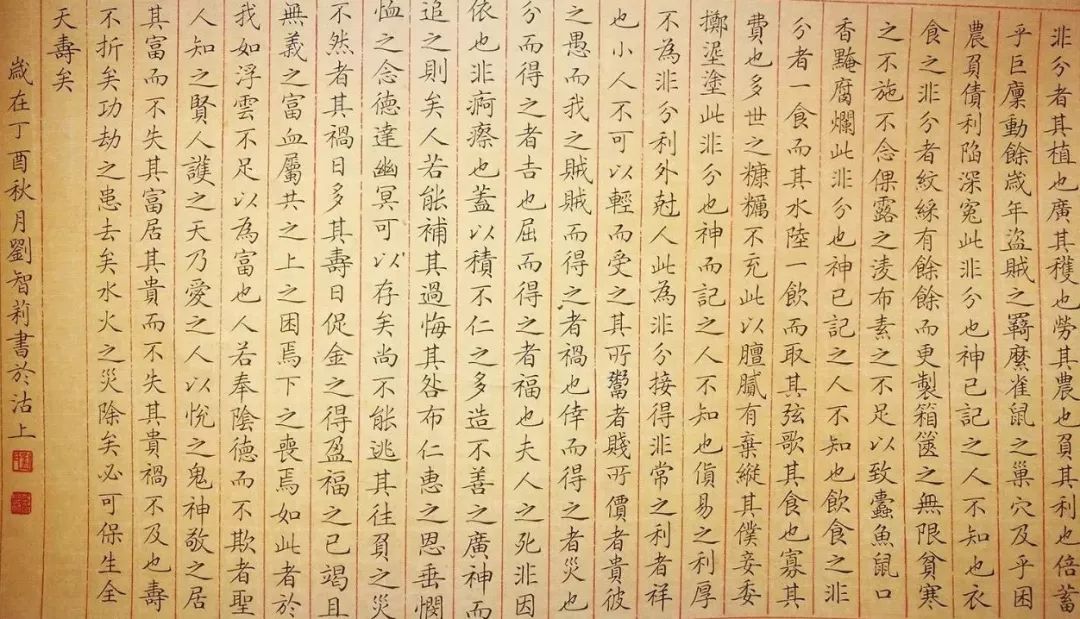 非分者其植也廣其穫也勞其農也負其利也倍蓄
乎巨廩動餘歲年盜賊之羇縻雀鼠之巢穴及乎困
農負債利陷深冤此非分也神已記之人不知也衣
食之非分者紋綵有餘餘而更製箱篋之無限貧寒
之不施不念倮露之凌布素之不足以致蠹魚鼠口
香黤腐爛此非分也神已記之人不知也飲食之非
分者一食而其水陸一飲而取其弦歌其食也寡其
費也多世之糠糲不充此以膻膩有棄縱其僕妾委
擲埿塗此非分也神而記之人不知也貨易之利厚
不為非分利外尅人此為非分接得非常之利者祥
也小人不可以輕而受之其所鬻者賤所價者貴彼
之愚而我之賊賊而得之者禍也倖而得之者災也
分而得之者吉也屈而得之者福也夫人之死非因
依也非痾瘵也蓋以積不仁之多造不善之廣神而
追之則矣人若能補其過悔其咎布仁惠之恩垂憫
恤之念德達幽冥可以存矣尚不能逃其往負之災
不然者其禍日多其壽日促金之得盈福之已竭且
無義之富血屬共之上之困焉下之喪焉如此者於
我如浮雲不足以為富也人若奉陰德而不欺者聖
人知之賢人護之天乃愛之人以悅之鬼神敬之居
其富而不失其富居其貴而不失其貴禍不及也壽
不折矣功劫之患去矣水火之災除矣必可保生全
天壽矣
歲在丁酉秋月劉智莉書於沽上